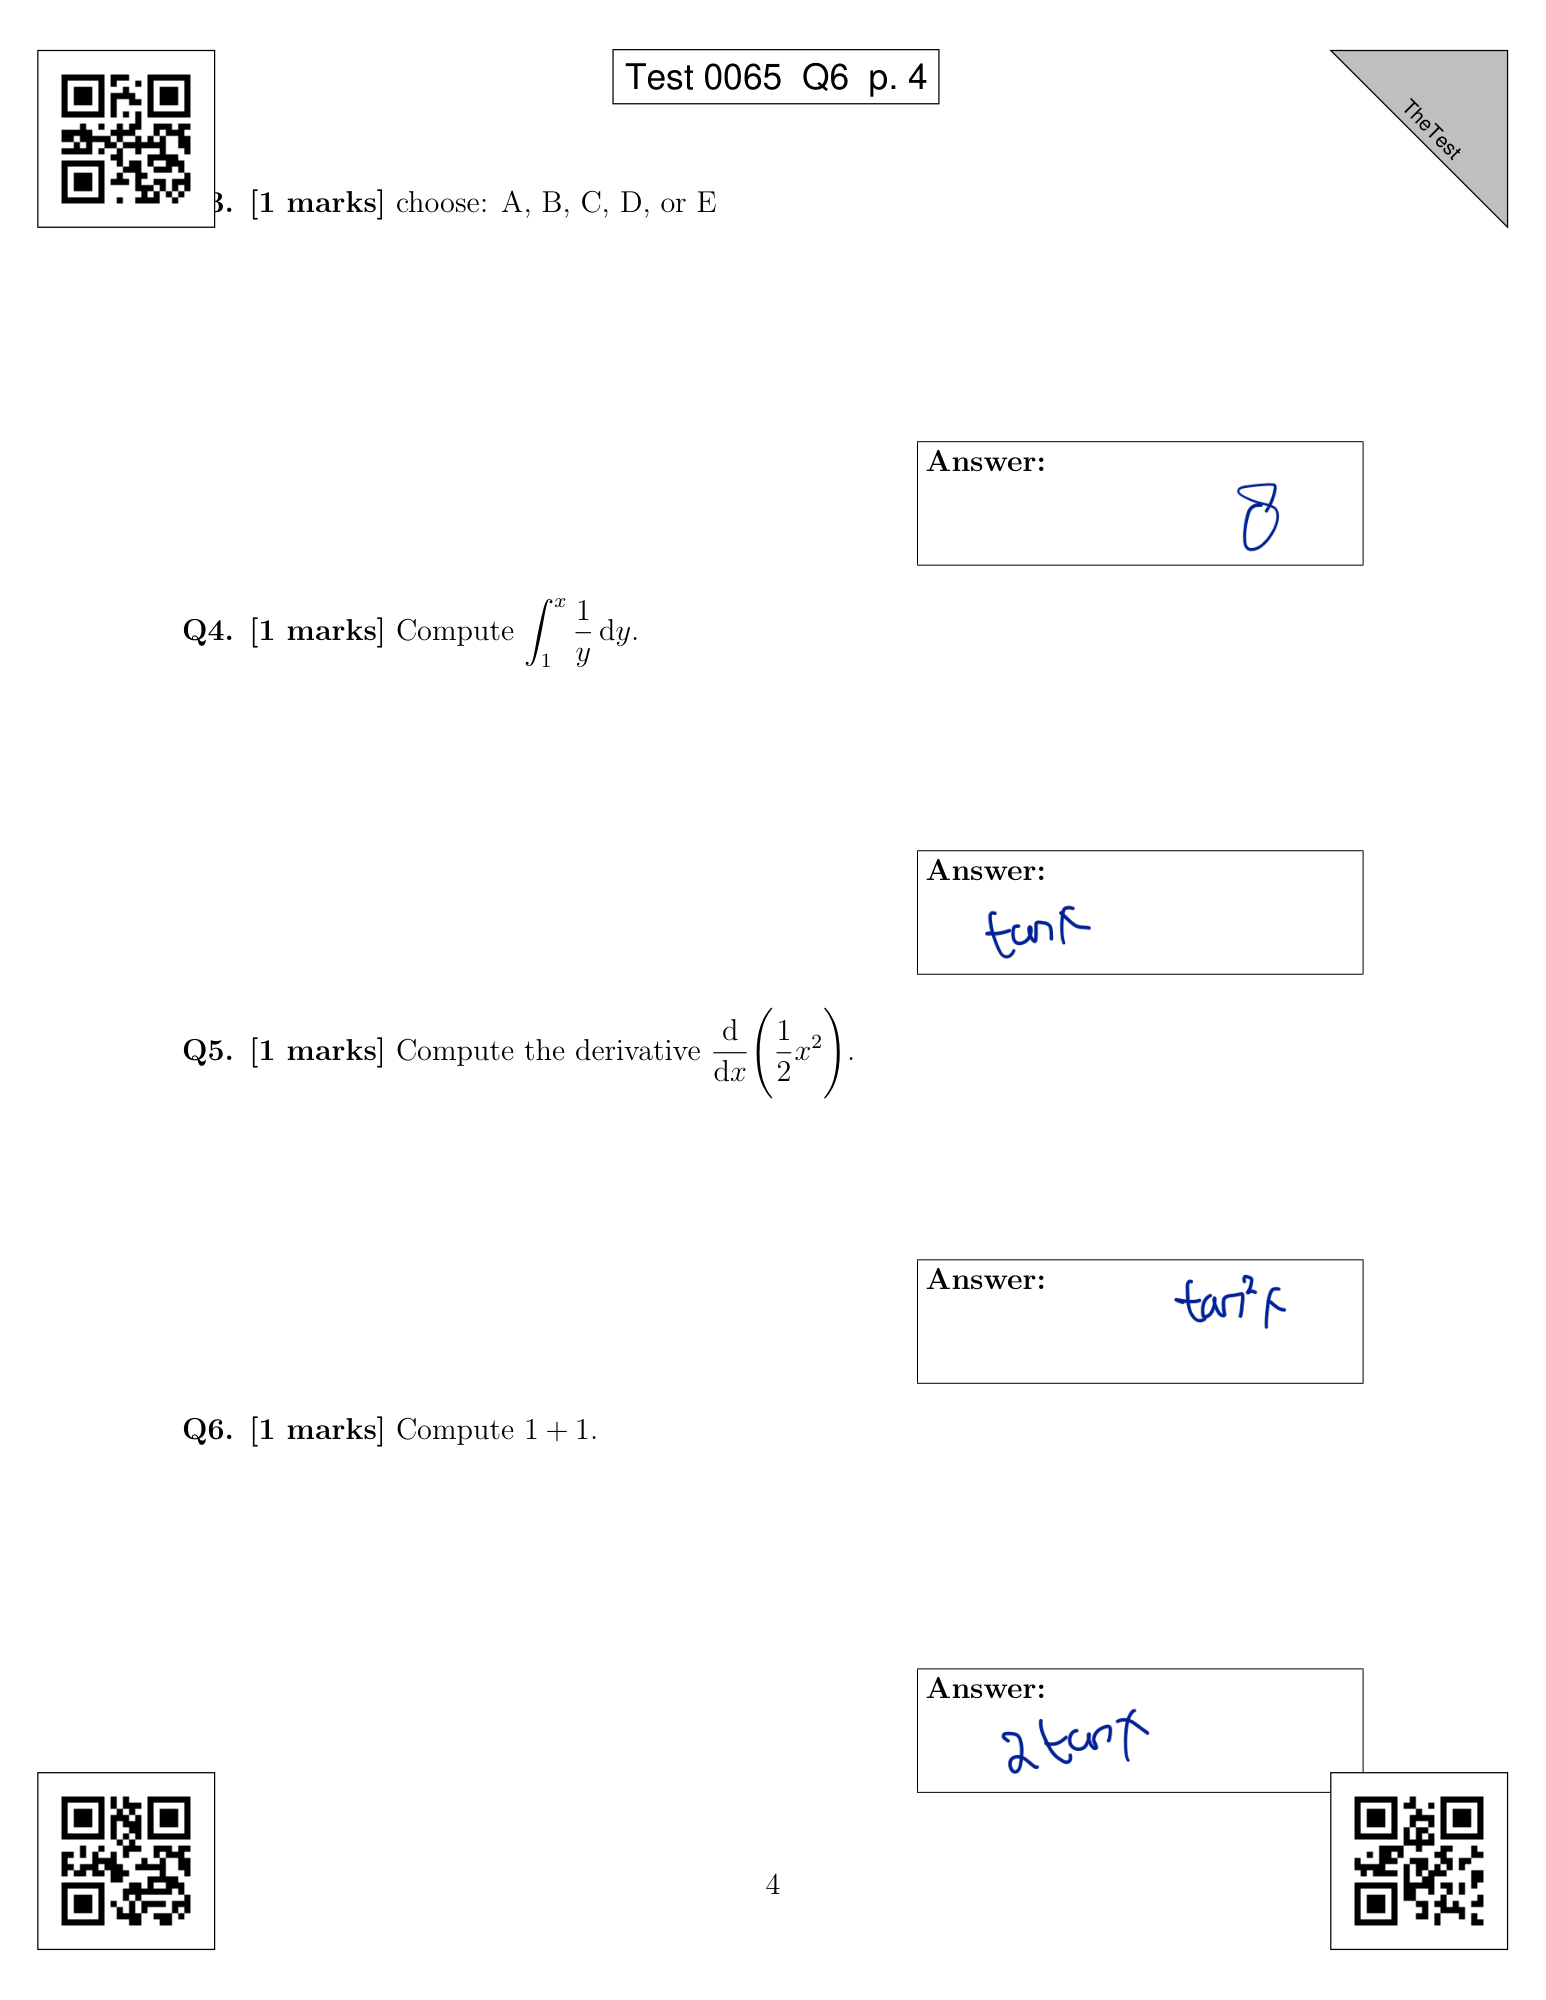 Test 0065 Q6 p. 4
TheTest
3. [1 marks] choose: A, B, C, D, or E
Answer:
8
Q4. [1 marks] Compute ∫₁ˣ 1/y dy.
Answer:
tan x
Q5. [1 marks] Compute the derivative d/dx (1/2 x²).
Answer:
tan² x
Q6. [1 marks] Compute 1 + 1.
Answer:
2 tan x
4